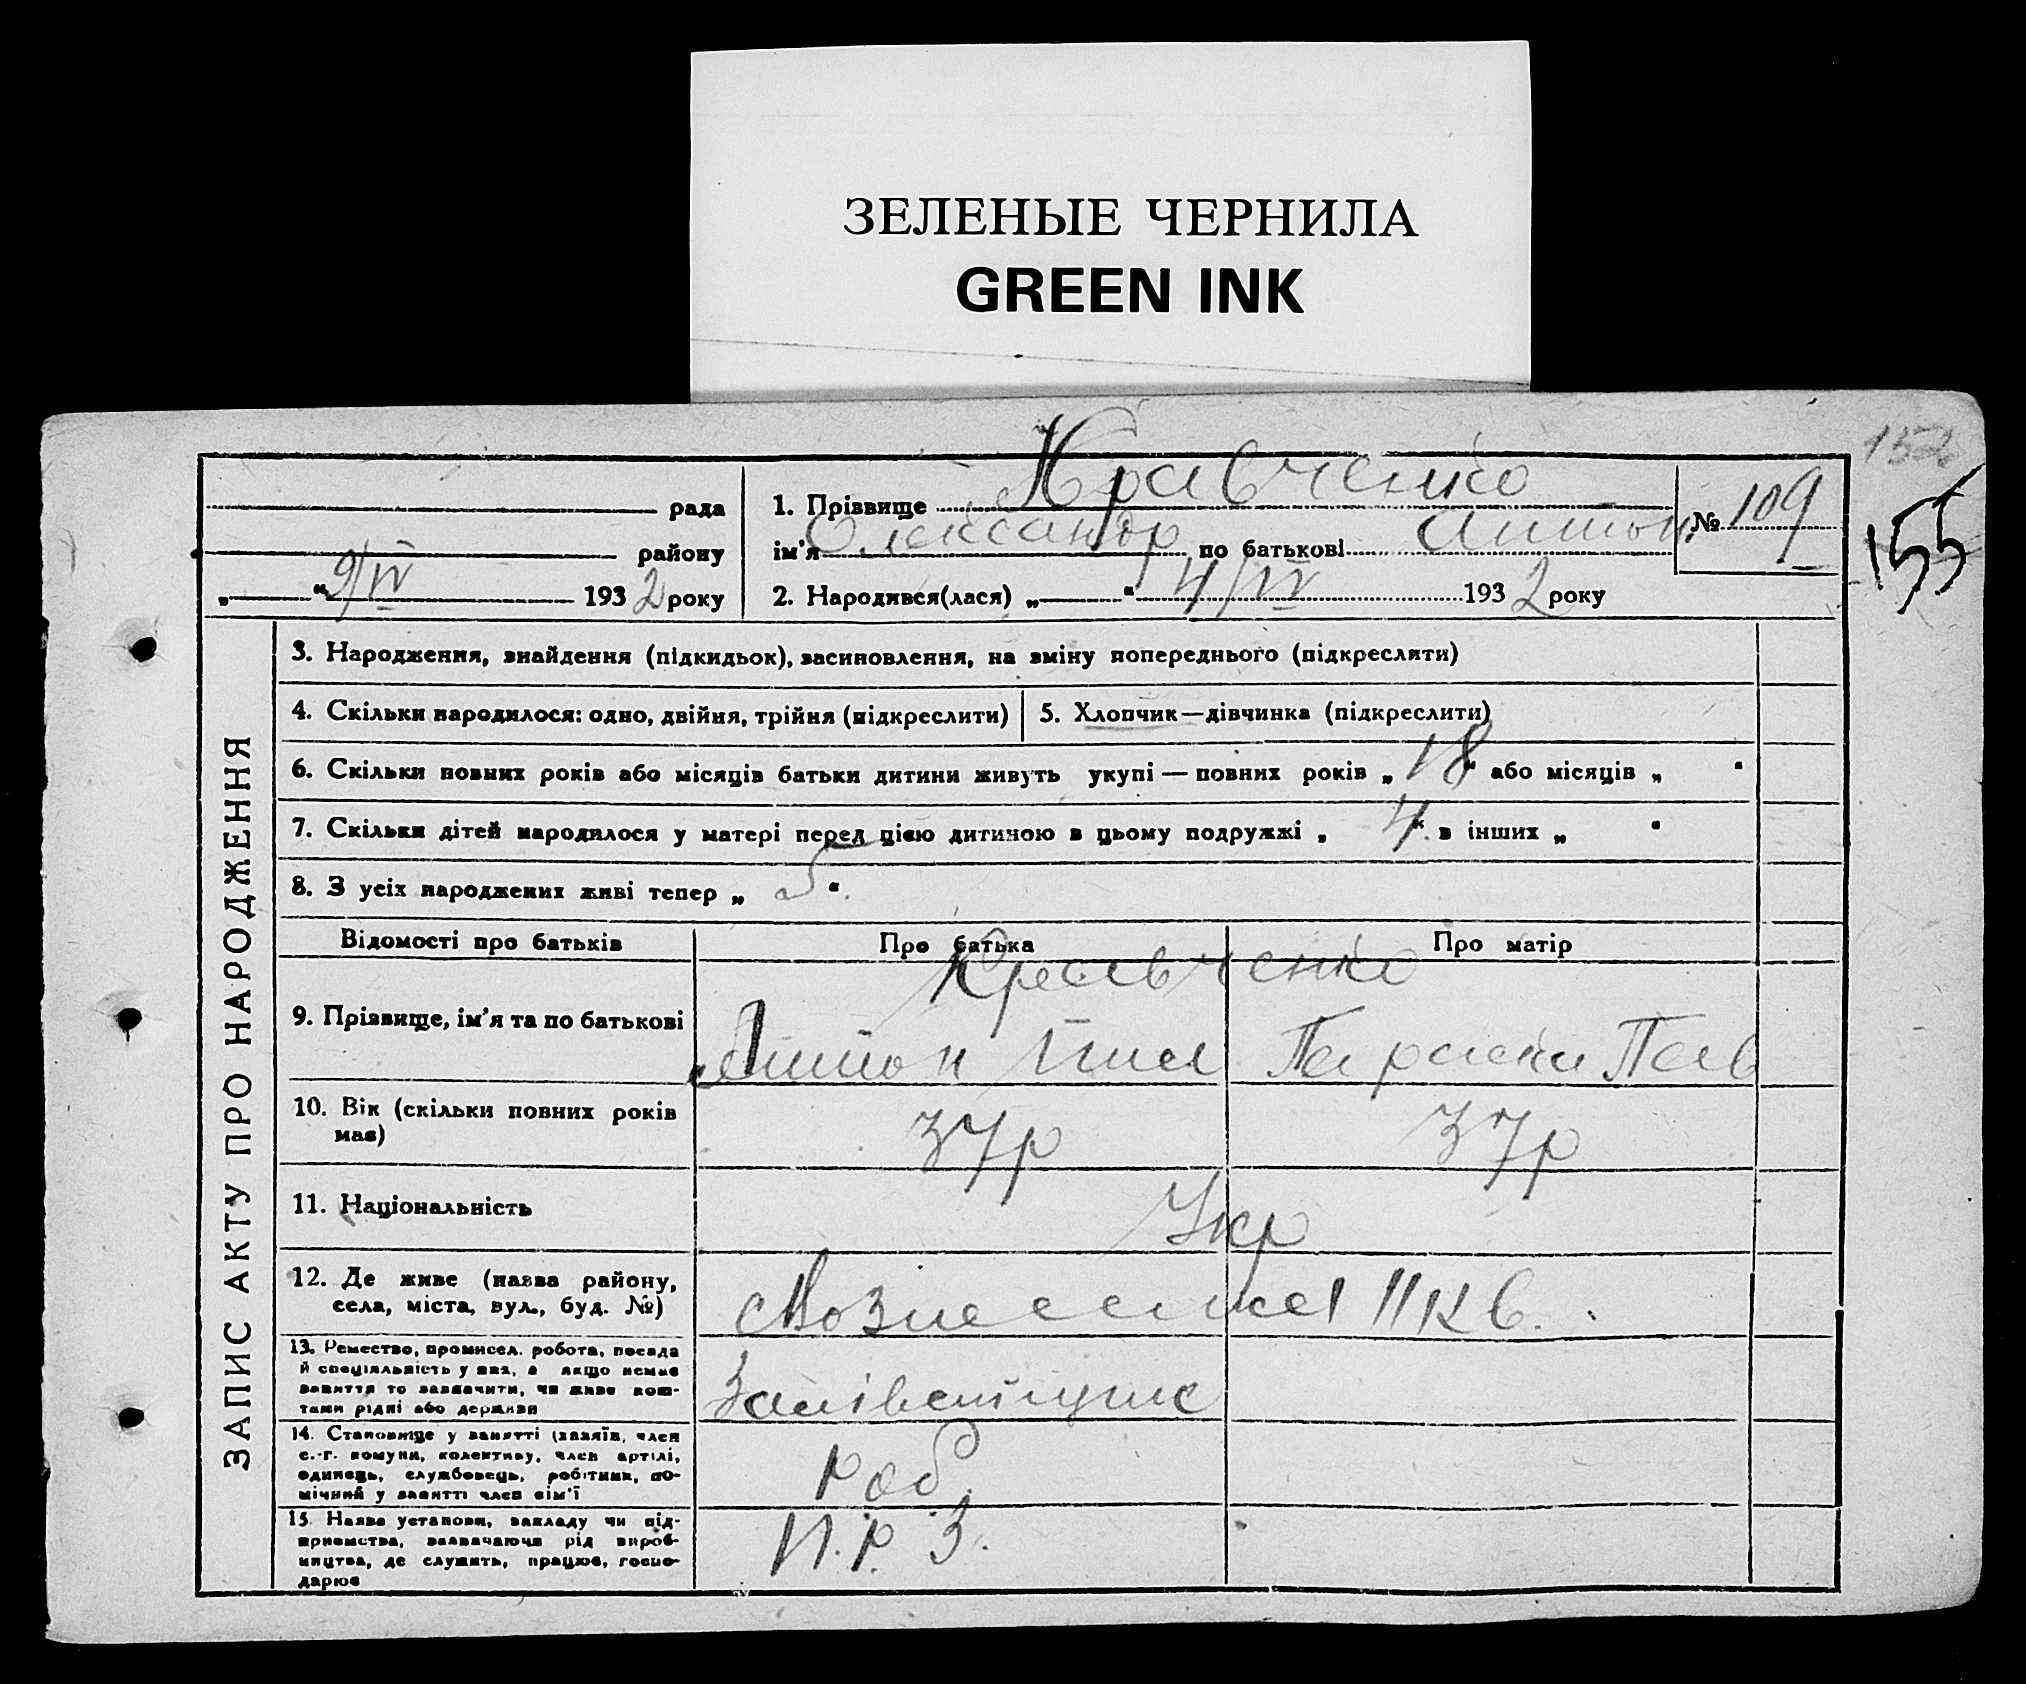 ЗЕЛЕНЫЕ ЧЕРНИЛА
GREEN INK
152
155
рада
району
„ “ 9/IV 1932 року
1. Прізвище Кравченко
ім’я Олександр по батькові Антон.
2. Народився(лася) „ “ 4/IV 1932 року
№ 109
ЗАПИС АКТУ ПРО НАРОДЖЕННЯ
3. Народження, знайдення (підкидьок), засиновлення, на зміну попереднього (підкреслити)
4. Скільки народилося: одно, двійня, трійня (підкреслити)
5. Хлопчик—дівчинка (підкреслити)
6. Скільки повних років або місяців батьки дитини живуть укупі — повних років „ 18 “ або місяців „ “
7. Скільки дітей народилося у матері перед цією дитиною в цьому подружжі „ 4 “ в інших „ “
8. З усіх народжених живі тепер „ 5 “.
Відомості про батьків
Про батька
Про матір
9. Прізвище, ім’я та по батькові
Кравченко
Антон
Параска Пав
10. Вік (скільки повних років
має)
37р
37р
11. Національність
Укр
12. Де живе (назва району,
села, міста, вул., буд. №)
Вознесенка 11 кв.
13. Ремество, промисел, робота, посада
й спеціяльність у них, а якщо немає
заняття то зазначити, чи живе кош-
тами рідні або держави
14. Становище у занятті (хазяїн, член
с.-г. комуни, колективу, член артілі,
одинець, службовець, робітник, по-
мічний у занятті член сім’ї
Роб.
15. Назва установи, закладу чи під-
приємства, зазначаючи рід вироб-
ництва, де служить, працює, госпо-
дарює
П. Р. З.